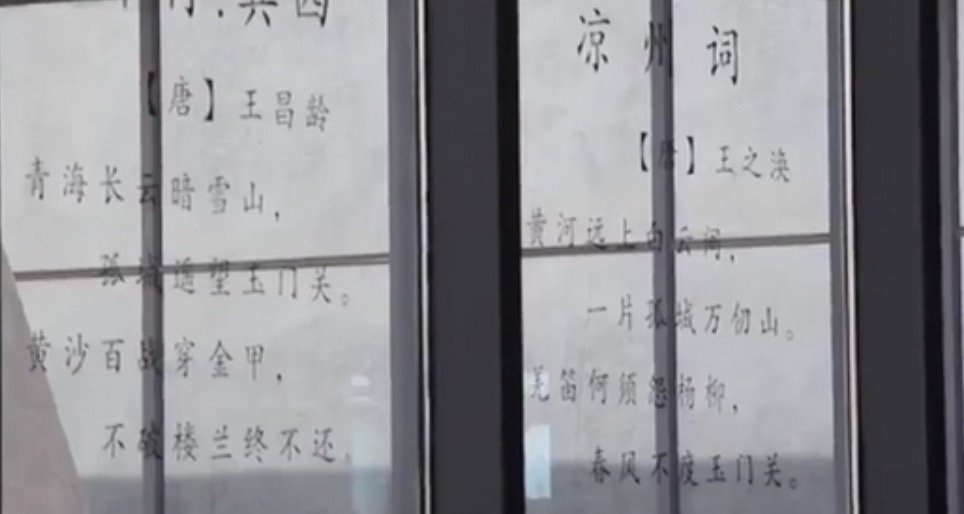 行·其四
【唐】王昌龄
青海长云暗雪山，
孤城遥望玉门关。
黄沙百战穿金甲，
不破楼兰终不还。
凉州词
【唐】王之涣
黄河远上白云间，
一片孤城万仞山。
羌笛何须怨杨柳，
春风不度玉门关。